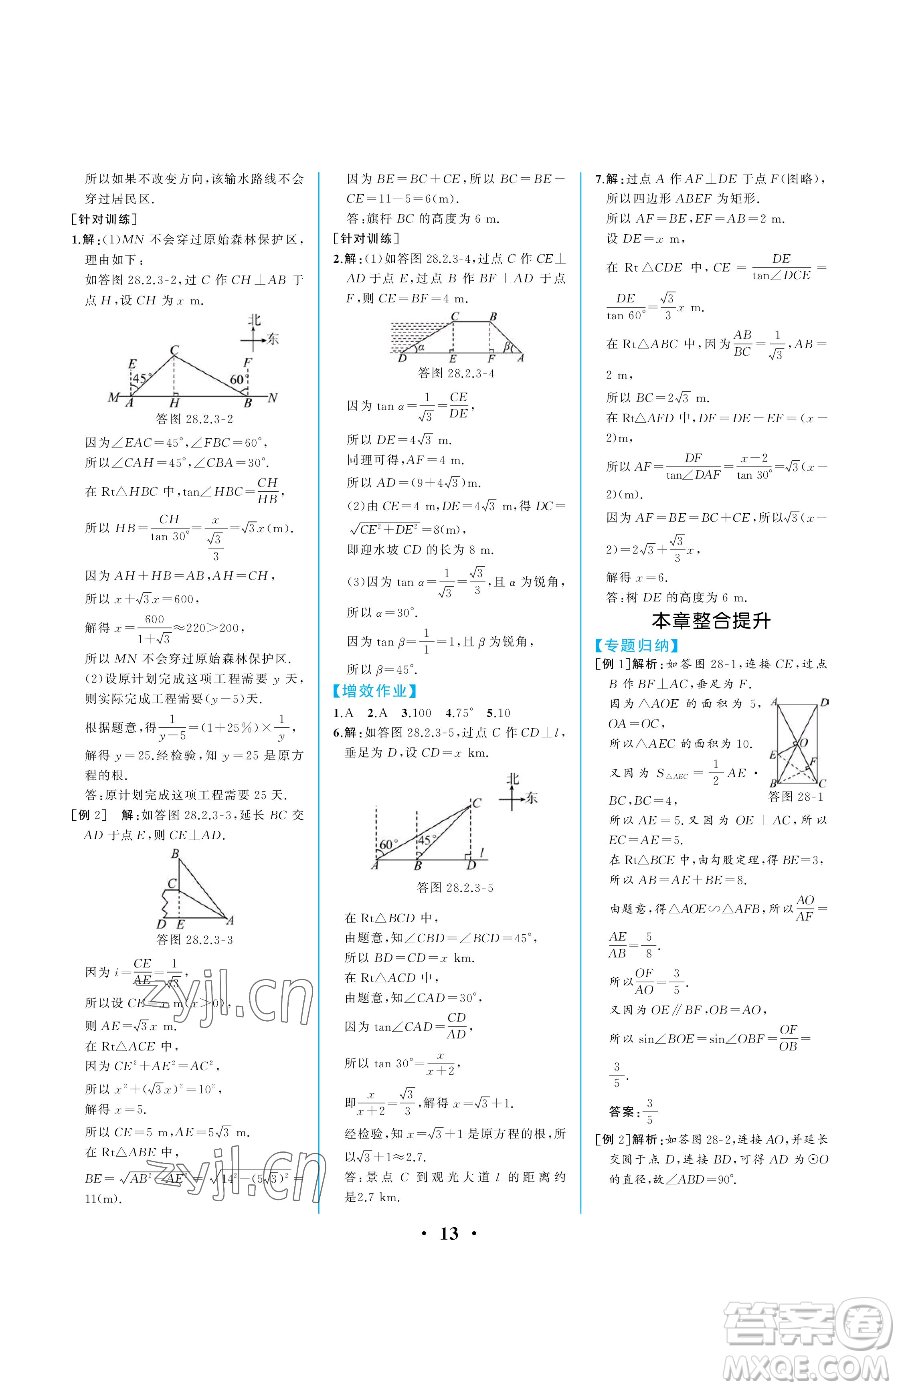 所以如果不改变方向,该输水路线不会
穿过居民区.
[针对训练]
1.解:(1)MN 不会穿过原始森林保护区,
理由如下:
如答图 28.2.3-2,过 C 作 CH⊥AB 于
点 H,设 CH 为 x m.
北
东
E
C
F
45°
60°
M
A
H
B
N
答图 28.2.3-2
因为∠EAC=45°,∠FBC=60°,
所以∠CAH=45°,∠CBA=30°.
在 Rt△HBC 中,tan∠HBC=CH/HB,
所以 HB=CH/tan 30°=x/(√3/3)=√3x(m).
因为 AH+HB=AB,AH=CH,
所以 x+√3x=600,
解得 x=600/(1+√3)≈220>200.
所以 MN 不会穿过原始森林保护区.
(2)设原计划完成这项工程需要 y 天,
则实际完成工程需要(y-5)天.
根据题意,得1/(y-5)=(1+25%)×1/y.
解得 y=25.经检验,知 y=25 是原方
程的根.
答:原计划完成这项工程需要 25 天.
[例 2] 解:如答图 28.2.3-3,延长 BC 交
AD 于点 E,则 CE⊥AD.
B
C
D
E
A
答图 28.2.3-3
因为 i=CE/AE=1/√3,
所以设 CE=x m(x>0),
则 AE=√3x m.
在 Rt△ACE 中,
因为 CE²+AE²=AC²,
所以 x²+(√3x)²=10²,
解得 x=5.
所以 CE=5 m,AE=5√3 m.
在 Rt△ABE 中,
BE=√(AB²-AE²)=√(14²-(5√3)²)=
11(m).
因为 BE=BC+CE,所以 BC=BE-
CE=11-5=6(m).
答:旗杆 BC 的高度为 6 m.
[针对训练]
2.解:(1)如答图 28.2.3-4,过点 C 作 CE⊥
AD 于点 E,过点 B 作 BF⊥AD 于点
F,则 CE=BF=4 m.
C
B
α
β
D
E
F
A
答图 28.2.3-4
因为 tan α=1/√3=CE/DE,
所以 DE=4√3 m.
同理可得,AF=BF=4 m.
所以 AD=(9+4√3)m.
(2)由 CE=4 m,DE=4√3 m,得 DC=
√(CE²+DE²)=8(m).
即迎水坡 CD 的长为 8 m.
(3)因为 tan α=1/√3=√3/3,且 α 为锐角,
所以 α=30°.
因为 tan β=1/1=1,且 β 为锐角,
所以 β=45°.
【增效作业】
1.A 2.A 3.100 4.75° 5.10
6.解:如答图 28.2.3-5,过点 C 作 CD⊥l,
垂足为 D,设 CD=x km.
北
东
C
60°
45°
A
B
D
l
答图 28.2.3-5
在 Rt△BCD 中,
由题意,知∠CBD=∠BCD=45°,
所以 BD=CD=x km.
在 Rt△ACD 中,
由题意,知∠CAD=30°,
因为 tan∠CAD=CD/AD,
所以 tan 30°=x/(x+2),
即x/(x+2)=√3/3,解得 x=√3+1.
经检验,x=√3+1是原方程的根,所
以 x=√3+1≈2.7.
答:景点 C 到观光大道 l 的距离约
是2.7 km.
7.解:过点 A 作 AF⊥DE 于点 F(图略),
所以四边形 ABEF 为矩形.
所以 AF=BE,EF=AB=2 m.
设 DE=x m,
在 Rt△CDE 中,CE=DE/tan∠DCE=
DE/tan 60°=√3/3 x m.
在 Rt△ABC 中,因为AB/BC=1/√3,AB=
2 m,
所以 BC=2√3 m.
在Rt△AFD 中,DF=DE-EF=(x-
2)m,
所以 AF=DF/tan∠DAF=(x-2)/tan 30°=√3(x-
2)(m).
因为 AF=BE=BC+CE,所以√3(x-
2)=2√3+√3/3 x,
解得 x=6.
答:树 DE 的高度为 6 m.
本章整合提升
【专题归纳】
[例 1]解析:如答图 28-1,连接 CE,过点
B 作 BF⊥AC,垂足为 F.
因为△AOE 的面积为 5,
OA=OC,
所以△AEC 的面积为 10.
又因为 S△AEC=1/2 AE·
BC,BC=4,
所以 AE=5.
A
D
O
E
F
B
C
答图 28-1
又因为 OE⊥AC,所以
EC=AE=5.
在 Rt△BCE 中,由勾股定理,得 BE=3,
所以 AB=AE+BE=8.
由题意,得△AOE∽△AFB,所以AO/AF=
AE/AB=5/8.
所以OF/AO=3/5.
又因为 OE∥BF,OB=AO,
所以 sin∠BOE=sin∠OBF=OF/OB=
3/5.
答案:3/5
[例 2]解析:如答图 28-2,连接 AO,并延长
交圆于点 D,连接 BD,可得 AD 为⊙O
的直径,故∠ABD=90°.
· 13 ·
zyjl.cn
zyjl.cn
答案圈
MXQE.COM